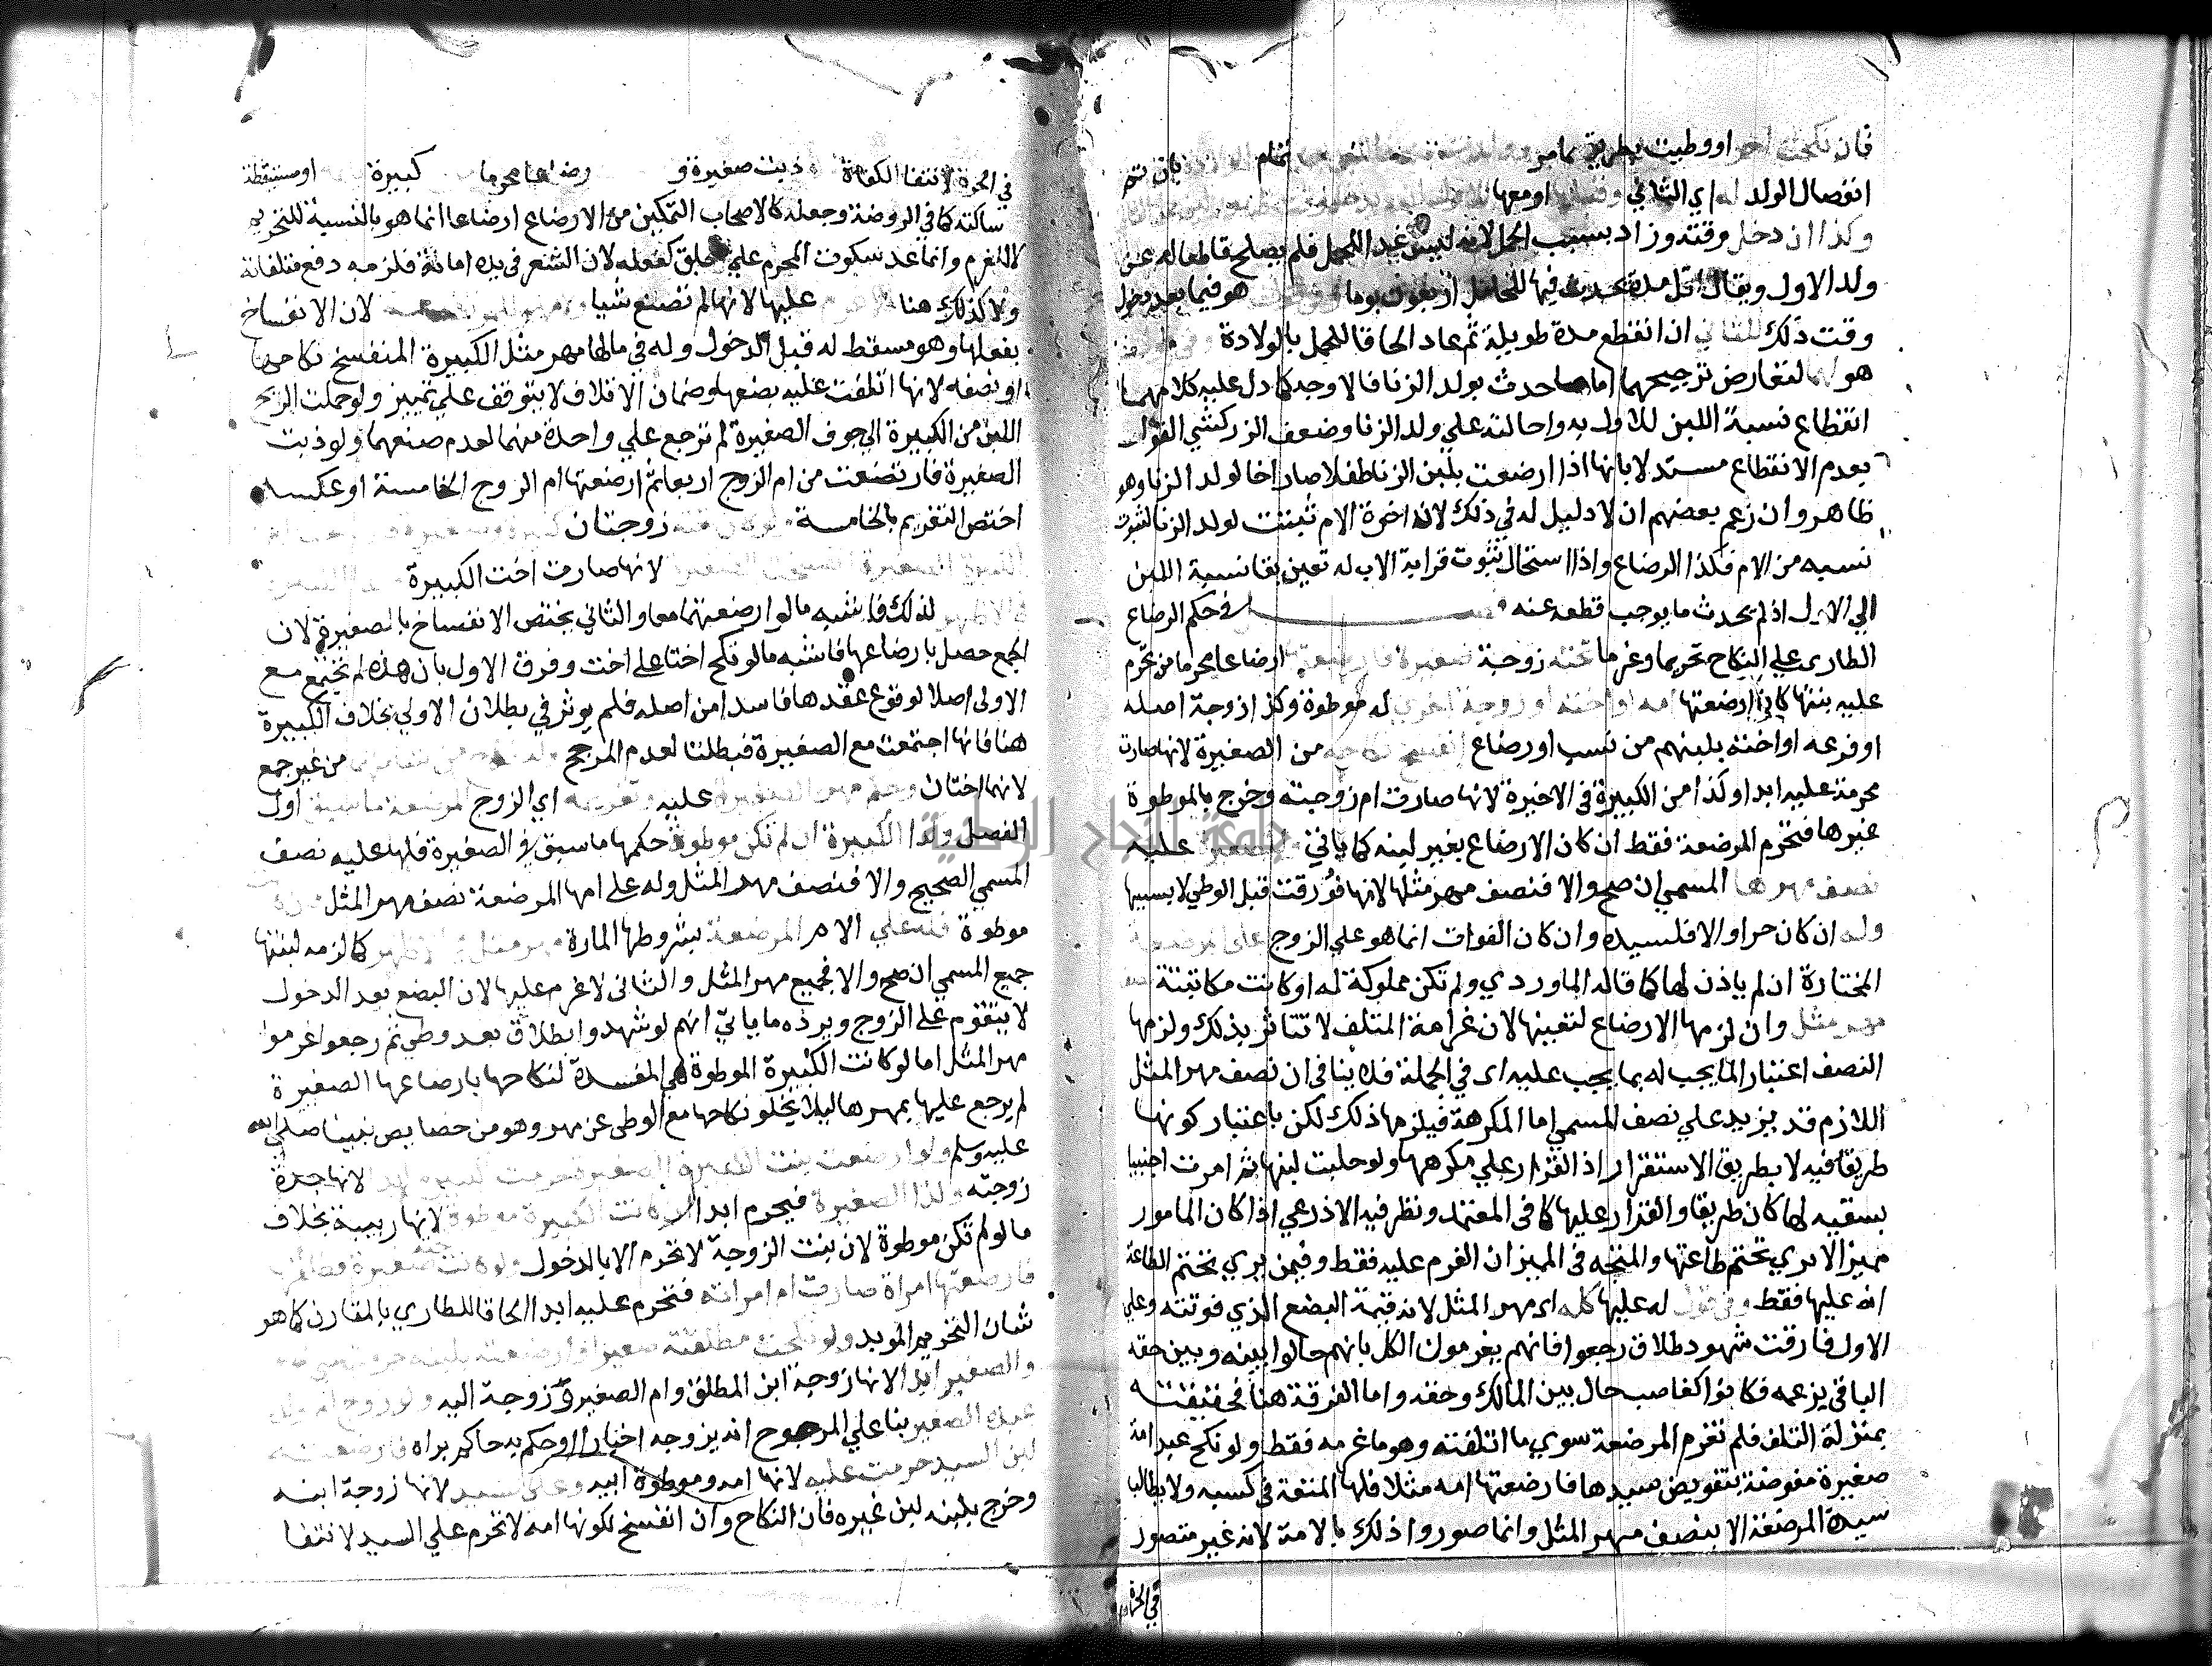 فان نكحت اخر او وطيت بطريق مما مر
انفصال الولد له اي الثاني او معها
وكذا ان دخل وقته وزاد بسبب الحمل لانه ليس غير الحمل فلم يصلح قاطعا له عن
ولد الاول ويقال اقل مدة يحدث فيها للحامل اربعون يوما هو فيما بعد دخول
وقت ذلك للثاني ان انقطع مدة طويلة ثم عاد الحاقا للحمل بالولادة
هو لهما لتعارض ترجيحهما اما ما حدث بولد الزنا فالاوجه كما دل عليه كلامهما
انقطاع نسبة اللبن للاول به واحالته علي ولد الزنا وضعف الزركشي القول
بعدم الانقطاع مستدلا بانها اذا ارضعت بلبن الزنا طفلا صار اخا لولد الزنا وهو
ظاهر وان زعم بعضهم ان لا دليل له في ذلك لان اخوة الام ثبتت لولد الزنا لثبوت
نسبه من الام فكذا الرضاع واذا استحال ثبوت قرابة الاب له تعين بقا نسبة اللبن
الي الاول اذ لم يحدث ما يوجب قطعه عنه فصل في حكم الرضاع
الطاري علي النكاح تحريما وغرما تحته زوجة صغيرة فارضعتها ارضاعا محرما من تحرم
عليه بنتها كان ارضعتها امه او اخته او زوجة اخري له موطوة وكذا زوجة اصله
او فرعه او اخته بلبنهم من نسب او رضاع انفسخ نكاحه من الصغيرة لانها صارت
محرمة عليه ابدا وكذا من الكبيرة في الاخيرة لانها صارت ام زوجته وخرج بالموطوة
غيرها فتحرم المرضعة فقط ان كان الارضاع بغير لبنه كما ياتي وللصغيرة عليه
نصف مهرها المسمي ان صح والا فنصف مهر مثلها لانها فورقت قبل الوطي لا بسببها
وله ان كان حرا والا فلسيده وان كان الفوات انما هو علي الزوج علي المرضعة
المختارة ان لم ياذن لها كما قاله الماوردي ولم تكن مملوكة له او كانت مكاتبته
مهر مثل وان لزمها الارضاع لتعينها لان غرامة المتلف لا تتاثر بذلك ولزمها
النصف اعتبارا لما يجب له بما يجب عليه اي في الجملة فلا ينافي ان نصف مهر المثل
اللازم قد يزيد علي نصف المسمي اما المكرهة فيلزمها ذلك لكن باعتبار كونها
طريقا فيه لا بطريق الاستقرار اذ القرار علي مكرهها ولو حلبت لبنها ثم امرت اجنبيا
بسقيه لها كان طريقا والقرار عليها كما في المعتمد ونظر فيه الاذرعي اذا كان المامور
مميزا لا يري تحتم طاعتها والمتجه في المميز ان الغرم عليه فقط وفيمن يري تحتم الطاعة
انه عليها فقط وفي قول له عليها كله اي مهر المثل لانه قيمة البضع الذي فوتته وعلي
الاول فارقت شهود طلاق رجعوا فانهم يغرمون الكل بانهم حالوا بينه وبين حقه
الباقي بزعمه فكانوا كغاصب حال بين المالك وحقه واما الفرقة هنا فحقيقته
بمنزلة التلف فلم تغرم المرضعة سوي ما اتلفته وهو ما غرمه فقط ولو نكح عبد امة
صغيرة مفوضة بتفويض سيدها فارضعتها امه مثلا فلها المتعة في كسبه ولا يطالب
سيدة المرضعة الا بنصف مهر المثل وانما صوروا ذلك بالامة لانه غير متصور
في الحرة
في الحرة لانتفا الكفاة دبت صغيرة و رضاعا محرما كبيرة او مستيقظة
ساكتة كما في الروضة وجعله كالاصحاب التمكين من الارضاع ارضاعا انما هو بالنسبة للتحريم
لا الغرم وانما عد سكوت المحرم علي حلق كفعله لان الشعر في يده امانة فلزمه دفع متلفاته
ولا كذلك هنا عليها لانها لم تصنع شيا لان الانفساخ
بفعلها وهو مسقط له قبل الدخول وله في مالها مهر مثل الكبيرة المنفسخ نكاحها
او نصفه لانها اتلفت عليه بضعها وضمان الاتلاف لا يتوقف علي تمييز ولو حملت الريح
اللبن من الكبيرة الي جوف الصغيرة لم ترجع علي واحدة منهما لعدم صنعهما ولو دبت
الصغيرة فارتضعت من ام الزوج اربعا ثم ارضعتها ام الزوج الخامسة او عكسه
اختص التغريم بالخامسة زوجتان
لانها صارت اخت الكبيرة
لذلك فاشبه ما لو ارضعتهما معا والثاني يختص الانفساخ بالصغيرة لان
الجمع حصل بارضاعها فاشبه ما لو نكح اختا علي اخت وفرق الاول بان هذه لم تجتمع مع
الاولي اصلا لوقوع عقدها فاسدا من اصله فلم يوثر في بطلان الاولي بخلاف الكبيرة
هنا فانها اجتمعت مع الصغيرة فبطلتا لعدم المرجح من غير جمع
لانهما اختان وحكم مهر الصغيرة عليه وتغريمه اي الزوج المرضعة ما سبق اول
الفصل وكذا الكبيرة ان لم تكن موطوة حكمها ما سبق في الصغيرة فلها عليه نصف
المسمي الصحيح والا فنصف مهر المثل وله علي امها المرضعة نصف مهر المثل
موطوة فله علي الام المرضعة بشروطها المارة مهر مثل كما لزمه لبنتها
جميع المسمي ان صح والا فجميع مهر المثل والثاني لا غرم عليها لان البضع بعد الدخول
لا يتقوم علي الزوج ويرده ما ياتي انهم لو شهدوا بطلاق بعد وطي ثم رجعوا غرموا
مهر المثل اما لو كانت الكبيرة الموطوة هي المفسدة لنكاحها بارضاعها الصغيرة
لم يرجع عليها بمهرها ليلا يخلو نكاحها مع الوطي عن مهر وهو من خصايص نبينا صلي الله
عليه وسلم ولو ارضعت بنت الكبيرة الصغيرة حرمت الكبيرة ابدا لانها جدة
زوجته وكذا الصغيرة فيحرم ابدا ان كانت الكبيرة موطوة لانها ربيبة بخلاف
ما لو لم تكن موطوة لان بنت الزوجة لا تحرم الا بالدخول ولو كانت تحته صغيرة فطلقها
فارضعتها امراة صارت ام امراته فتحرم عليه ابدا الحاقا للطاري بالمقارن كما هو
شان التحريم الموبد ولو نكحت مطلقته صغيرا وارضعته بلبنه حرمت
والصغير ابدا لانها زوجة ابن المطلق وام الصغير وزوجة ابيه ولو زوج ام ولده
عبده الصغير بنا علي المرجوح انه يزوجه اجبارا او حكم به حاكم يراه فارضعته
لبن السيد حرمت عليه لانها امه وموطوة ابيه وعلي السيد لانها زوجة ابنه
وخرج بلبنه لبن غيره فان النكاح وان انفسخ لكونها امه لا تحرم علي السيد لانتفا